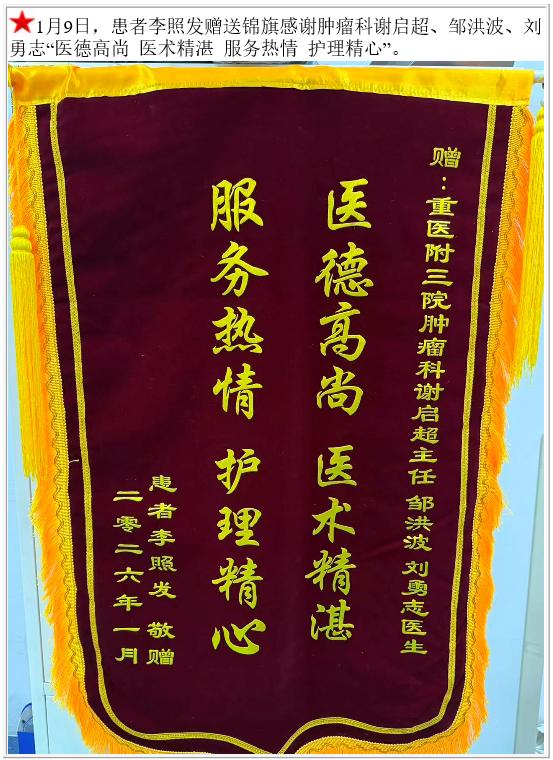 1月9日，患者李照发赠送锦旗感谢肿瘤科谢启超、邹洪波、刘
勇志“医德高尚 医术精湛 服务热情 护理精心”。
赠：重医附三院肿瘤科谢启超主任 邹洪波 刘勇志医生
医德高尚 医术精湛
服务热情 护理精心
患者李照发 敬赠
二零二六年一月